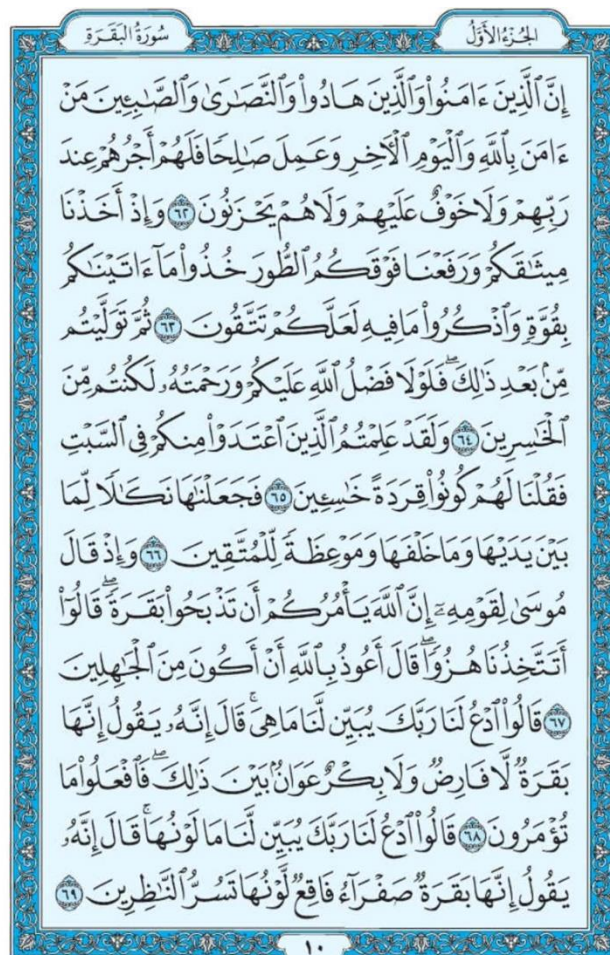 الجُزْءُ الأَوَّلُ
سُورَةُ البَقَرَةِ
إِنَّ ٱلَّذِينَ ءَامَنُوا۟ وَٱلَّذِينَ هَادُوا۟ وَٱلنَّصَٰرَىٰ وَٱلصَّٰبِـِٔينَ مَنْ
ءَامَنَ بِٱللَّهِ وَٱلْيَوْمِ ٱلْأَخِرِ وَعَمِلَ صَٰلِحًا فَلَهُمْ أَجْرُهُمْ عِندَ
رَبِّهِمْ وَلَا خَوْفٌ عَلَيْهِمْ وَلَا هُمْ يَحْزَنُونَ ٦٢ وَإِذْ أَخَذْنَا
مِيثَٰقَكُمْ وَرَفَعْنَا فَوْقَكُمُ ٱلطُّورَ خُذُوا۟ مَآ ءَاتَيْنَٰكُم
بِقُوَّةٍ وَٱذْكُرُوا۟ مَا فِيهِ لَعَلَّكُمْ تَتَّقُونَ ٦٣ ثُمَّ تَوَلَّيْتُم
مِّنۢ بَعْدِ ذَٰلِكَ ۖ فَلَوْلَا فَضْلُ ٱللَّهِ عَلَيْكُمْ وَرَحْمَتُهُۥ لَكُنتُم مِّنَ
ٱلْخَٰسِرِينَ ٦٤ وَلَقَدْ عَلِمْتُمُ ٱلَّذِينَ ٱعْتَدَوْا۟ مِنكُمْ فِى ٱلسَّبْتِ
فَقُلْنَا لَهُمْ كُونُوا۟ قِرَدَةً خَٰسِـِٔينَ ٦٥ فَجَعَلْنَٰهَا نَكَٰلًا لِّمَا
بَيْنَ يَدَيْهَا وَمَا خَلْفَهَا وَمَوْعِظَةً لِّلْمُتَّقِينَ ٦٦ وَإِذْ قَالَ
مُوسَىٰ لِقَوْمِهِۦٓ إِنَّ ٱللَّهَ يَأْمُرُكُمْ أَن تَذْبَحُوا۟ بَقَرَةً ۖ قَالُوٓا۟
أَتَتَّخِذُنَا هُزُوًا ۖ قَالَ أَعُوذُ بِٱللَّهِ أَنْ أَكُونَ مِنَ ٱلْجَٰهِلِينَ
٦٧ قَالُوا۟ ٱدْعُ لَنَا رَبَّكَ يُبَيِّن لَّنَا مَا هِىَ ۚ قَالَ إِنَّهُۥ يَقُولُ إِنَّهَا
بَقَرَةٌ لَّا فَارِضٌ وَلَا بِكْرٌ عَوَانٌۢ بَيْنَ ذَٰلِكَ ۖ فَٱفْعَلُوا۟ مَا
تُؤْمَرُونَ ٦٨ قَالُوا۟ ٱدْعُ لَنَا رَبَّكَ يُبَيِّن لَّنَا مَا لَوْنُهَا ۚ قَالَ إِنَّهُۥ
يَقُولُ إِنَّهَا بَقَرَةٌ صَفْرَآءُ فَاقِعٌ لَّوْنُهَا تَسُرُّ ٱلنَّٰظِرِينَ ٦٩
١٠